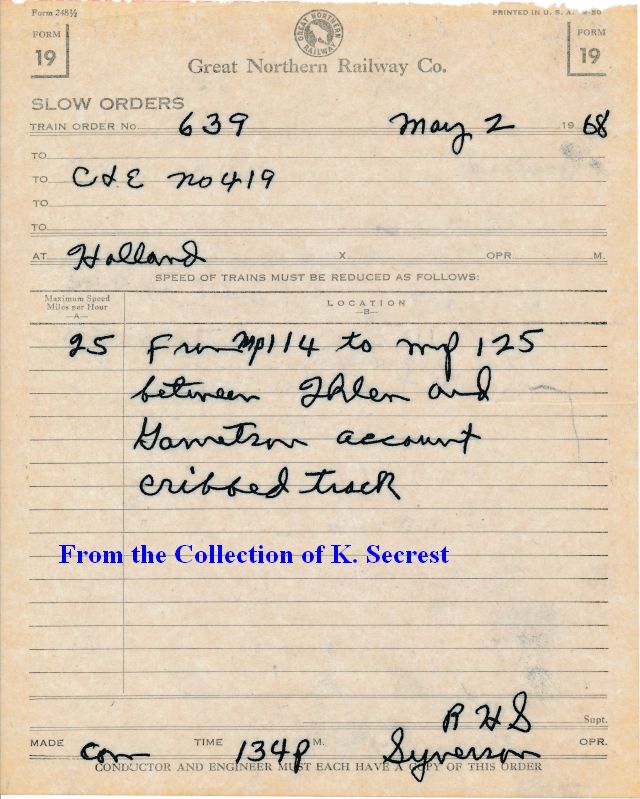 Form 248½
PRINTED IN U. S. A. 9-50
FORM 19
GREAT NORTHERN RAILWAY
FORM 19
Great Northern Railway Co.
SLOW ORDERS
TRAIN ORDER No. 639 May 2 19 68
TO
TO C&E no 419
TO
TO
AT Holland X OPR M.
SPEED OF TRAINS MUST BE REDUCED AS FOLLOWS:
Maximum Speed Miles per Hour —A— LOCATION —B—
25 From Mp 114 to mp 125
between Ihlen and
Garretson account
cribbed track
From the Collection of K. Secrest
R H S Supt.
MADE com TIME 134P M. Syverson OPR.
CONDUCTOR AND ENGINEER MUST EACH HAVE A COPY OF THIS ORDER